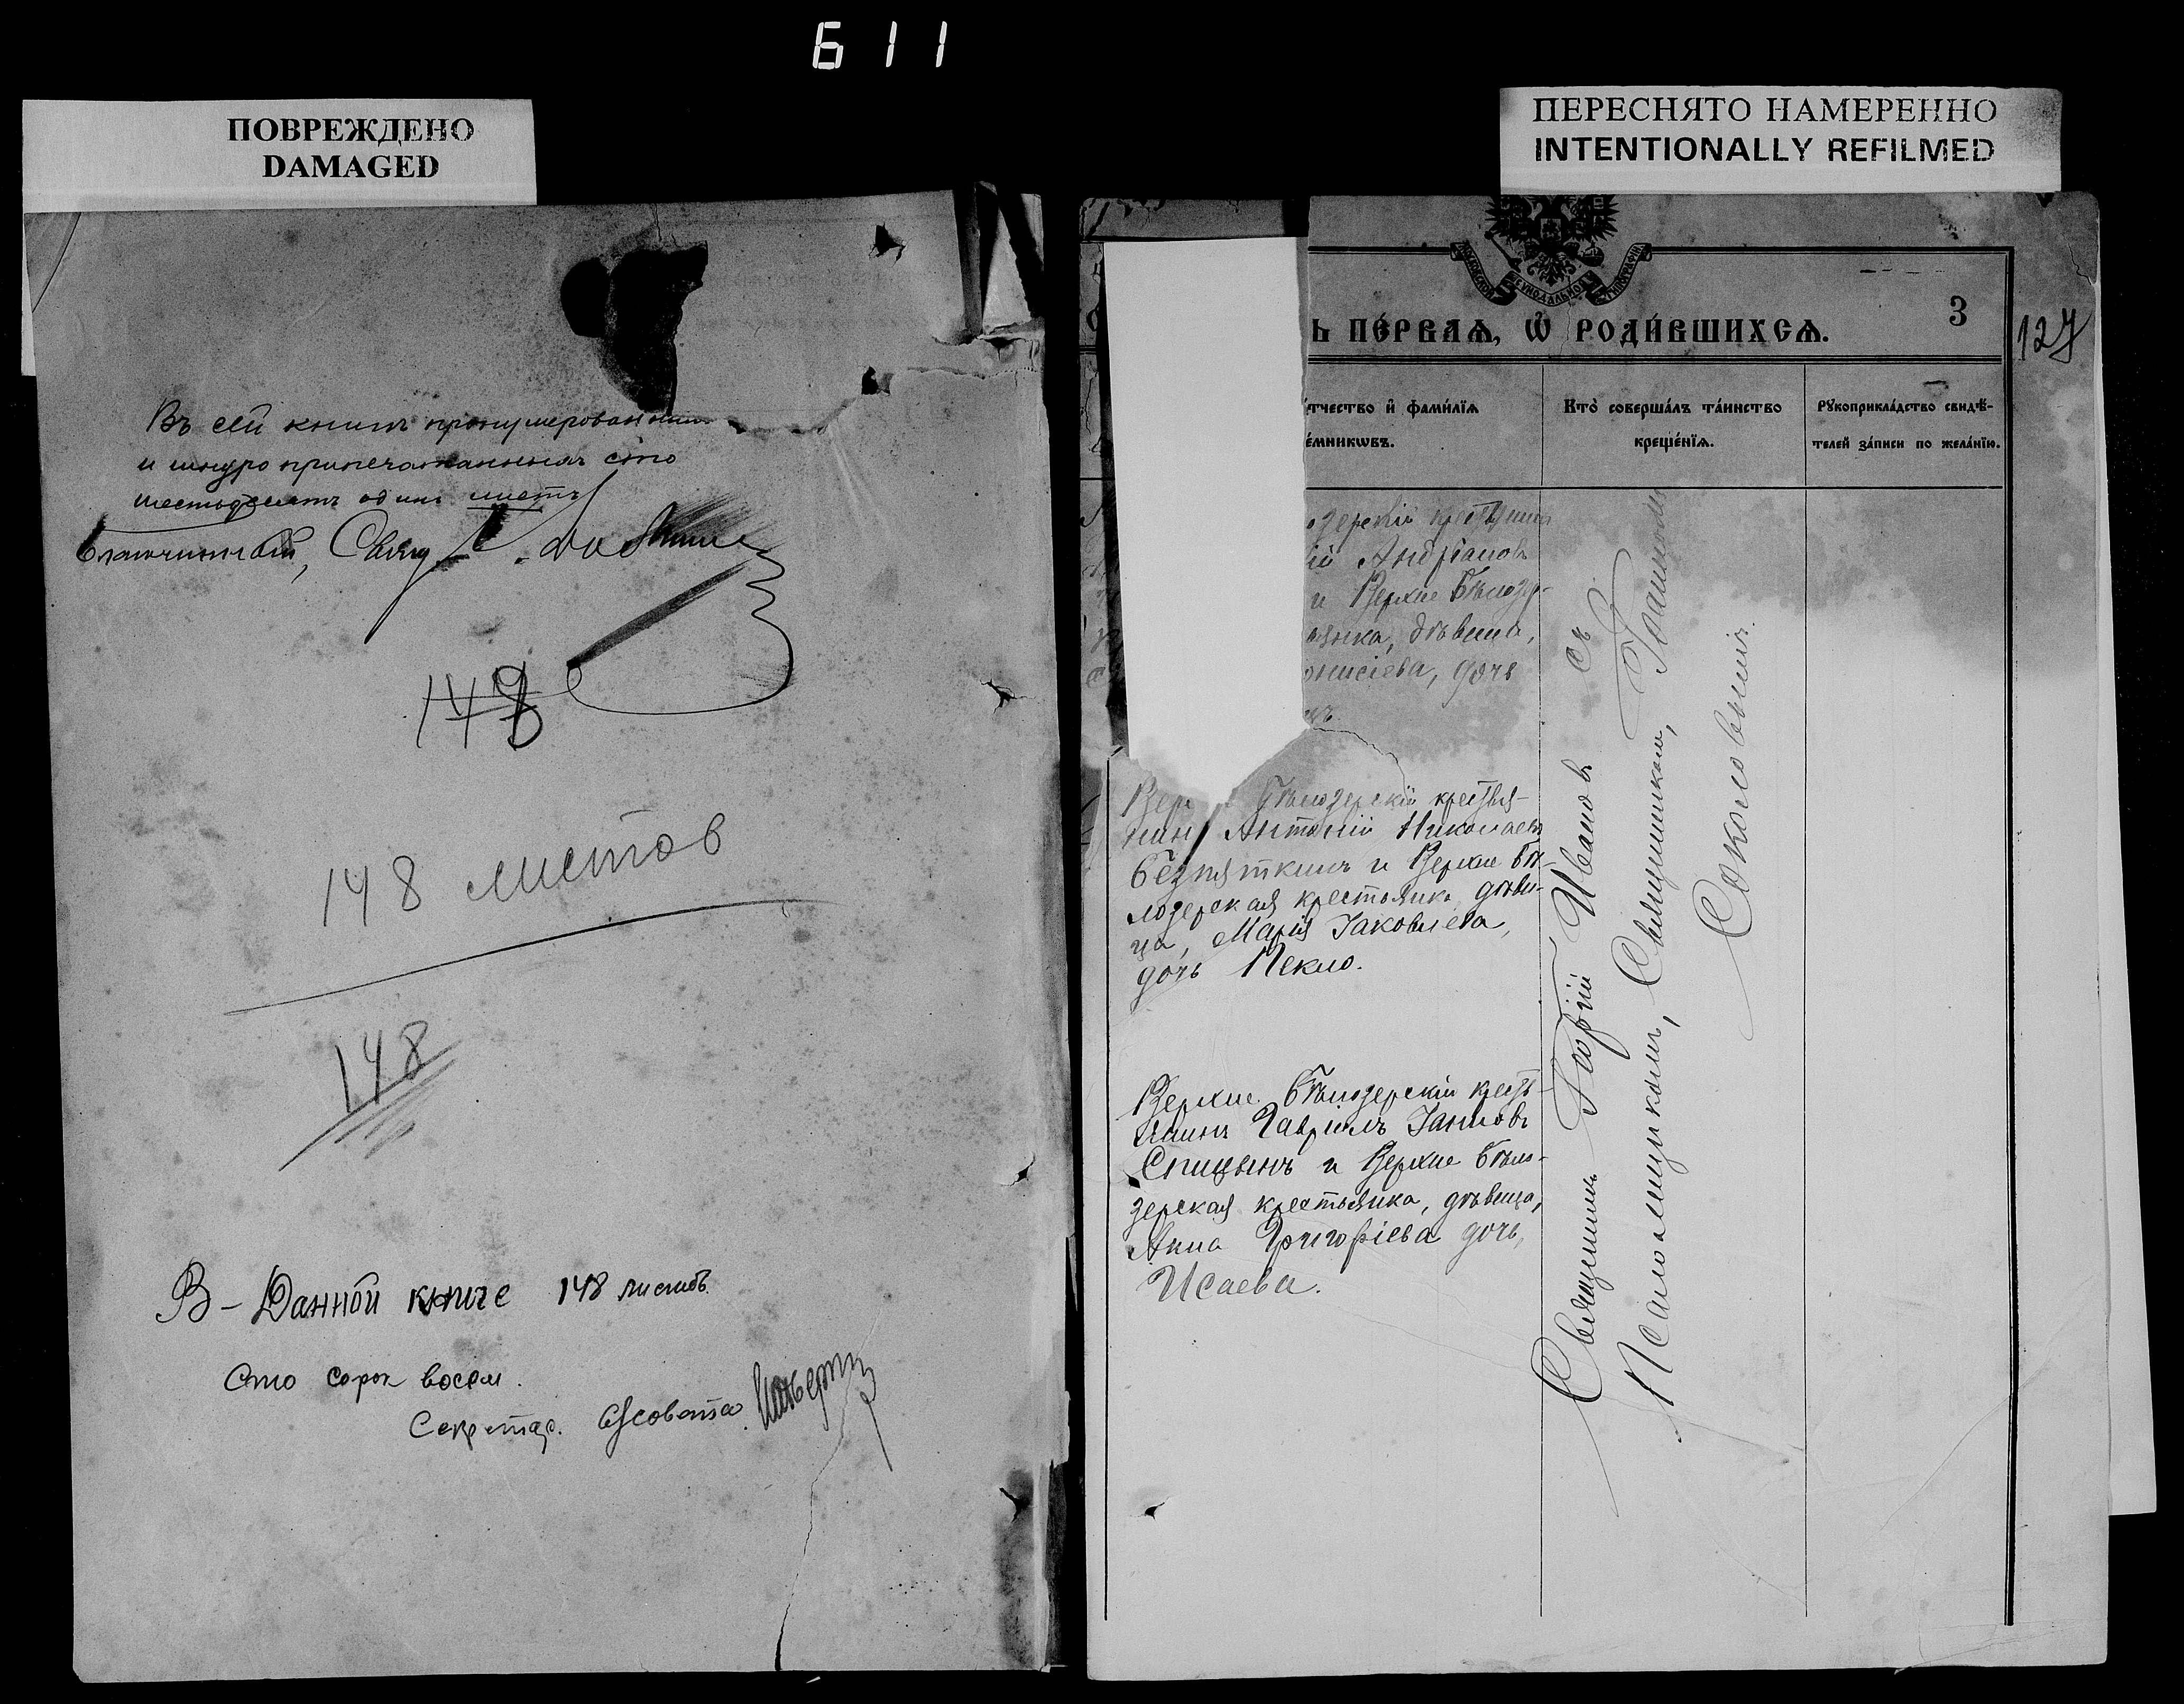 611
ПОВРЕЖДЕНО
DAMAGED
ПЕРЕСНЯТО НАМЕРЕННО
INTENTIONALLY REFILMED
Въ сей книгѣ пронумерованныхъ
и шнуро припечатанныхъ сто
шестьдесятъ одинъ листъ
Благочинный, Свящ.
148
148 листов
148
В - Данной книге 148 листов.
Сто сорок восем.
Секретар.
МОСКОВСКОЙ СѴНОДАЛЬНОЙ ТИПОГРАФІИ
Ь ПЕ́РВАѦ, Ѡ҆ РОДИ́ВШИХСѦ.
3
127
тчество и҆ фами́лїѧ
е́мникѡвъ.
Кто̀ соверша́лъ та́инство
креще́нїѧ.
Рꙋкоприкла́дство свидѣ́-
телей за́писи по жела́нїю.
озерскій крестьянин
ій Андріановъ
и Верхне Бѣлозер-
янка, дѣвица,
онисіева, дочь
Вер Бѣлозерскій крестья-
нин Антоній Николаевъ
Безпяткинъ и Верхне Бѣ-
лозерская крестьянка, дѣви-
ца, Марія Іаковлева,
дочь Пекло.
Верхне Бѣлозерскій кресть-
янинъ Гавріилъ Іанновъ
Спицынъ и Верхне Бѣло-
зерская крестьянка, дѣвица,
Анна Григоріева дочь,
Исаева.
Священникъ Георгій Ивановъ съ
Псаломщикомъ, Священникомъ, Іоанномъ
Соколовымъ.